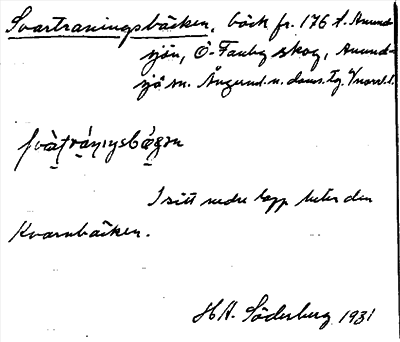 Svartraningsbäcken, bäck fr. 176 t. Amund-
sjön, Ö. Fanby skog, Amund-
sjö sn. Ångerm. n. doms. tg. Vnorrl. l.
I sitt nedre lopp heter den
Kvarnbäcken.
H. A. Söderberg 1931